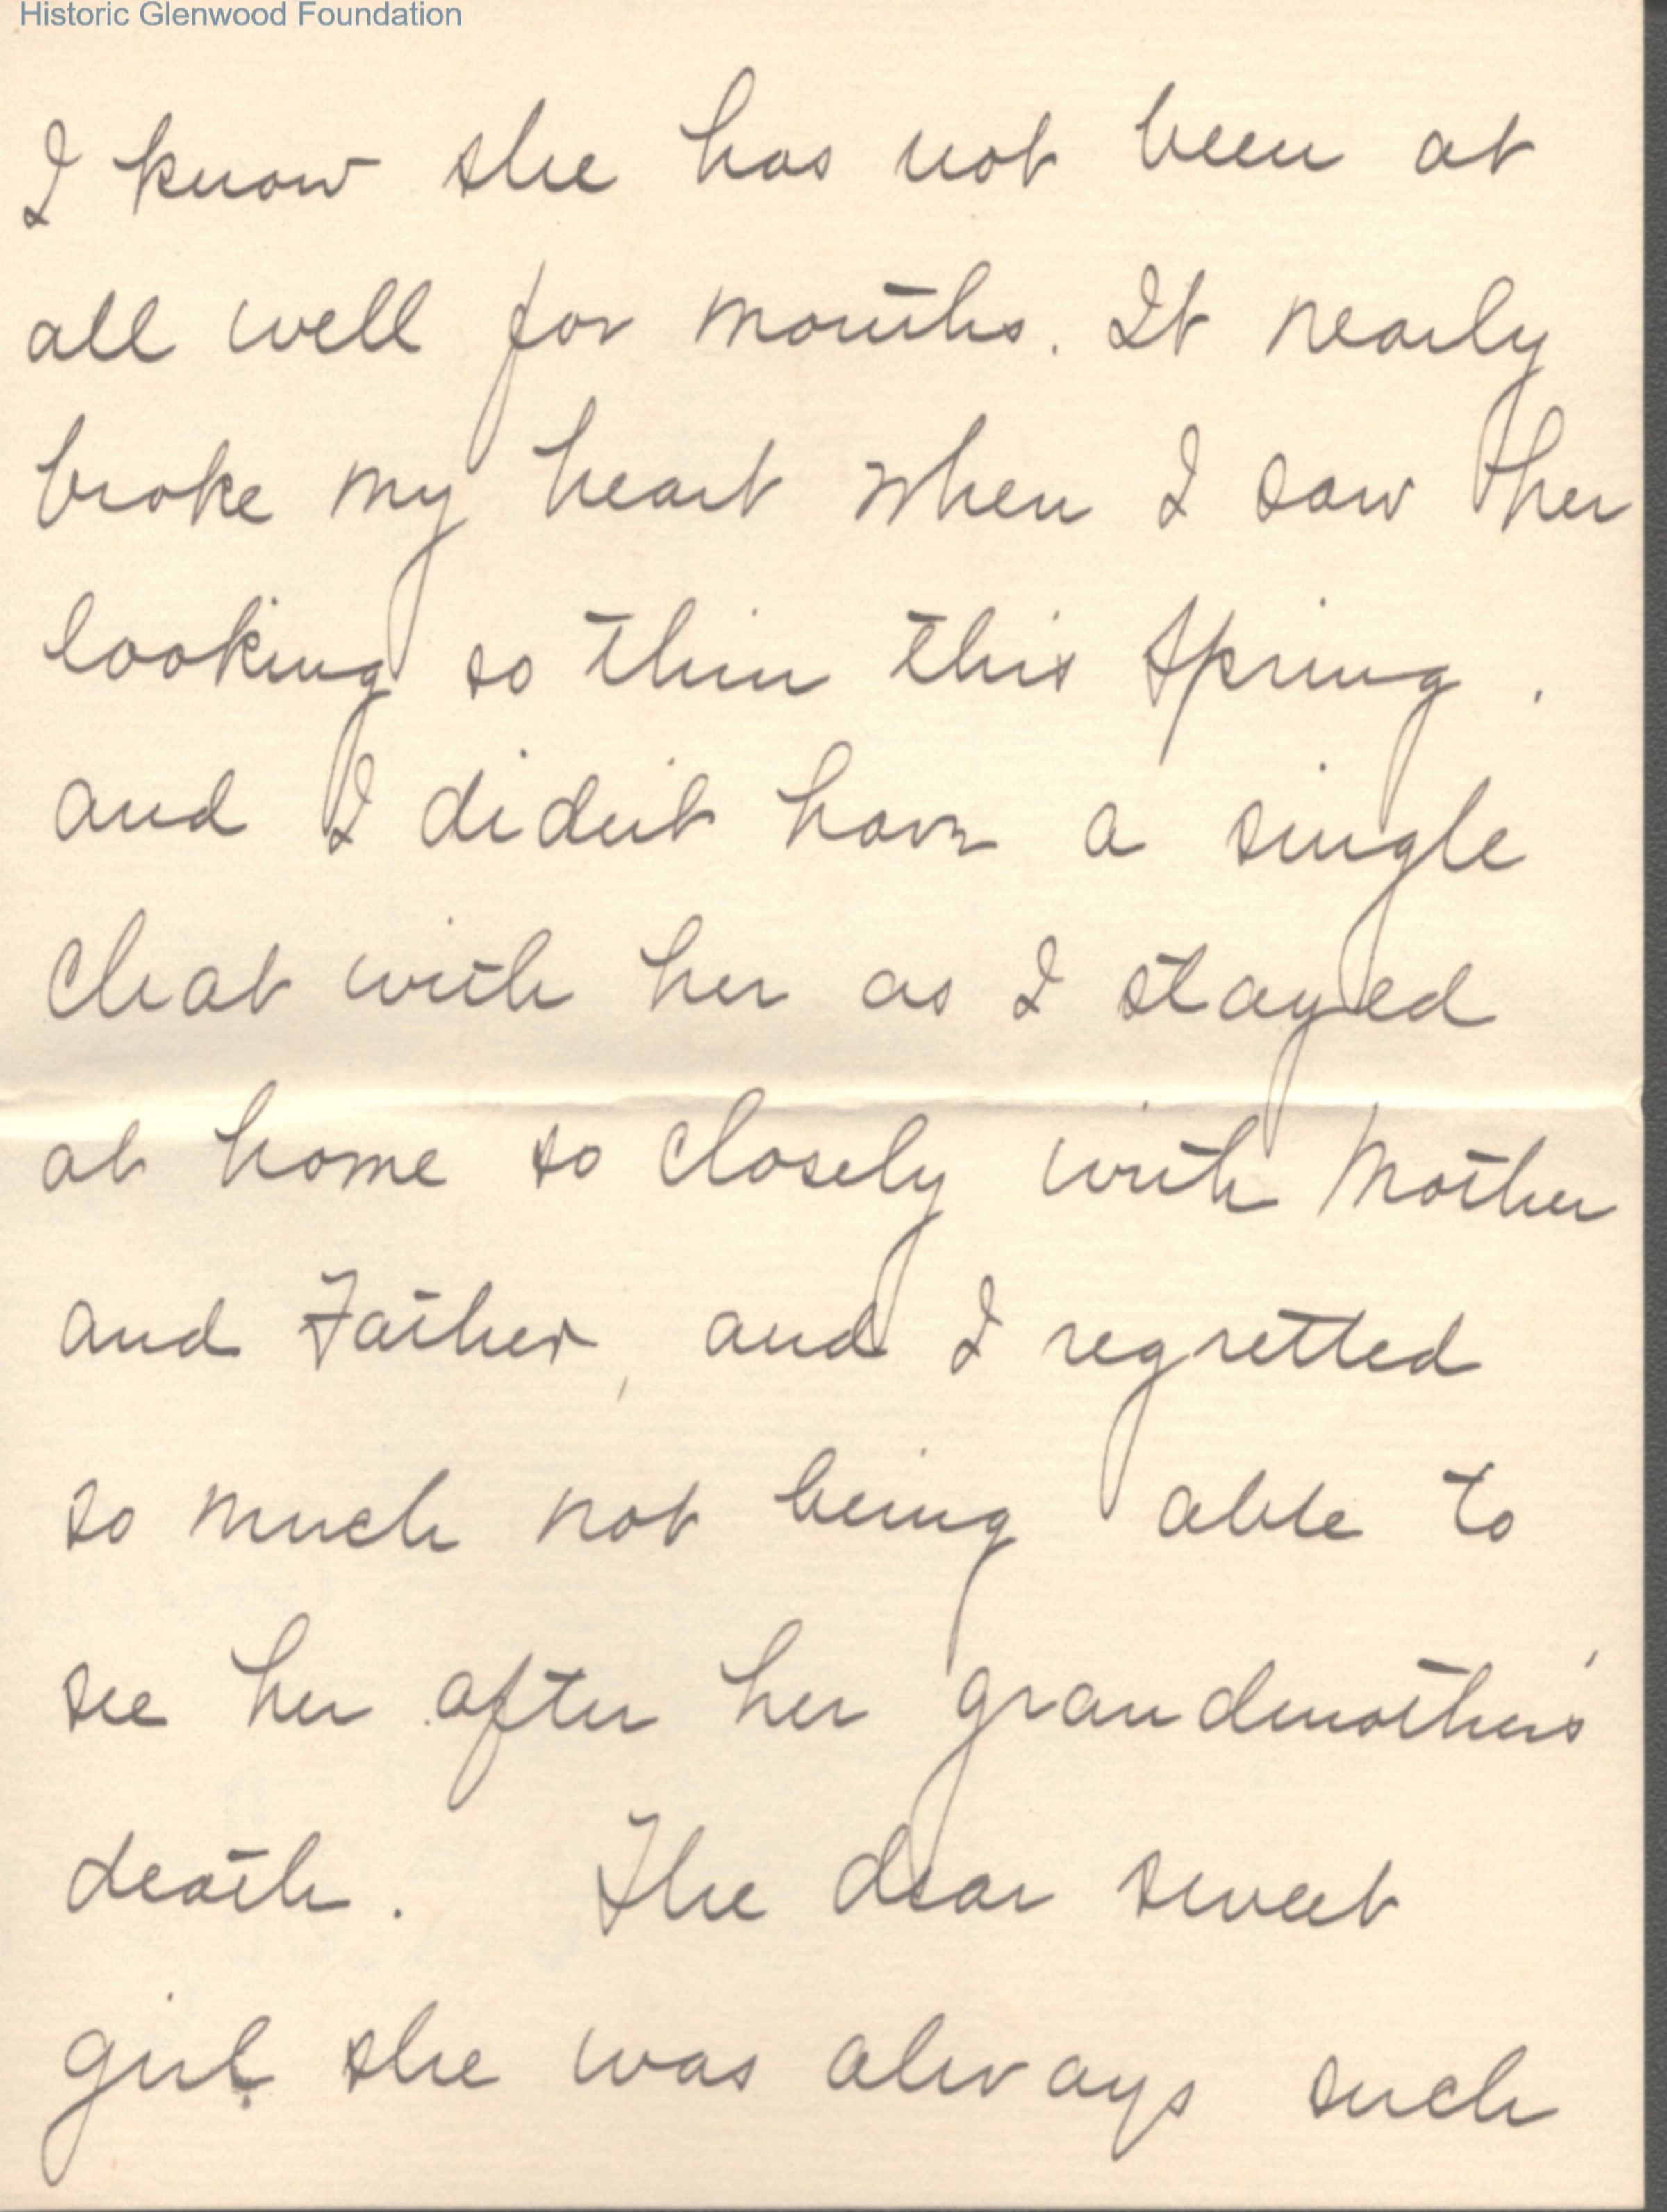 Historic Glenwood Foundation
I know she has not been at
all well for months. It nearly
broke my heart when I saw her
looking so thin this Spring.
and I didn't have a single
chat with her as I stayed
at home so closely with Mother
and Father, and I regretted
so much not being able to
see her after her grandmother's
death. The dear sweet
girl she was always such